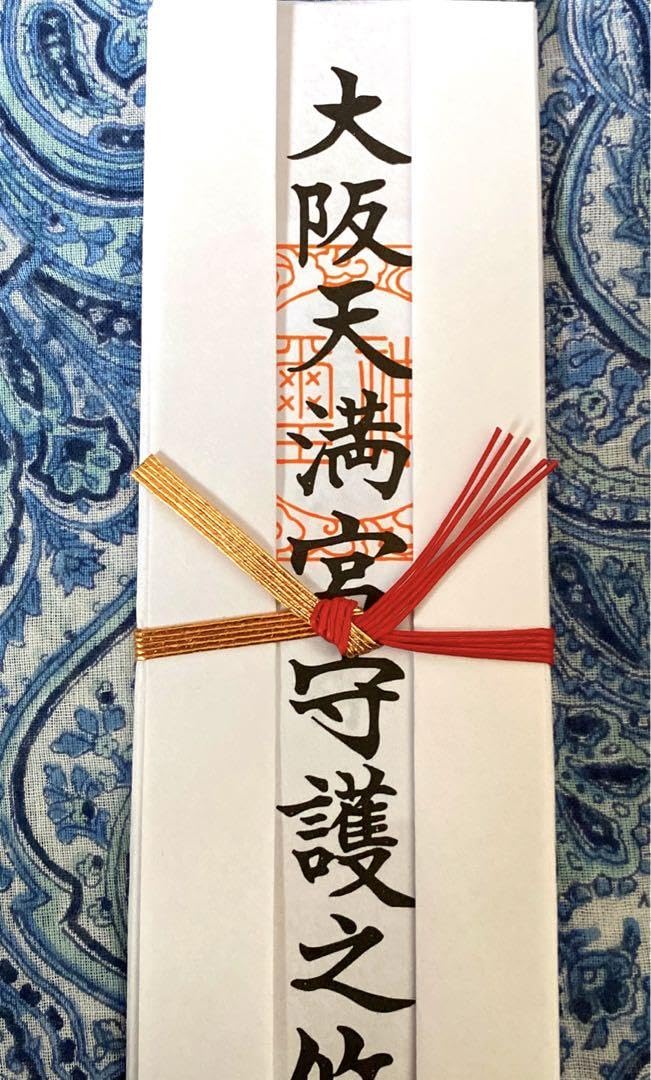 大阪天満宮守護之